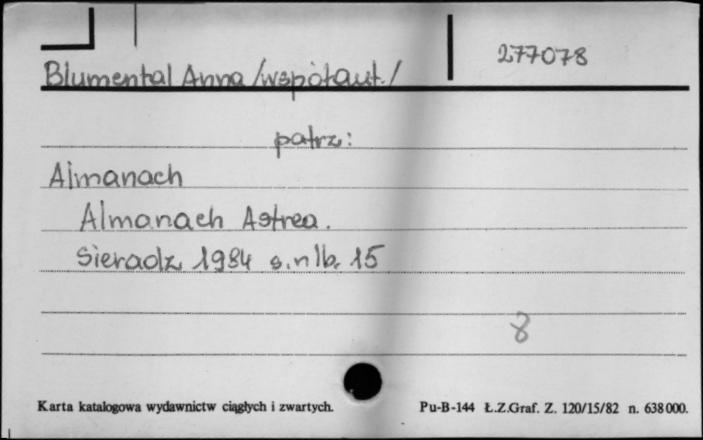 277078
Blumental Anna /współaut./
patrz:
Almanach
Almanach Astrea.
Sieradz 1984 s. nlb. 15
8
Karta katalogowa wydawnictw ciągłych i zwartych. Pu-B-144 Ł.Z.Graf. Z. 120/15/82 n. 638000.